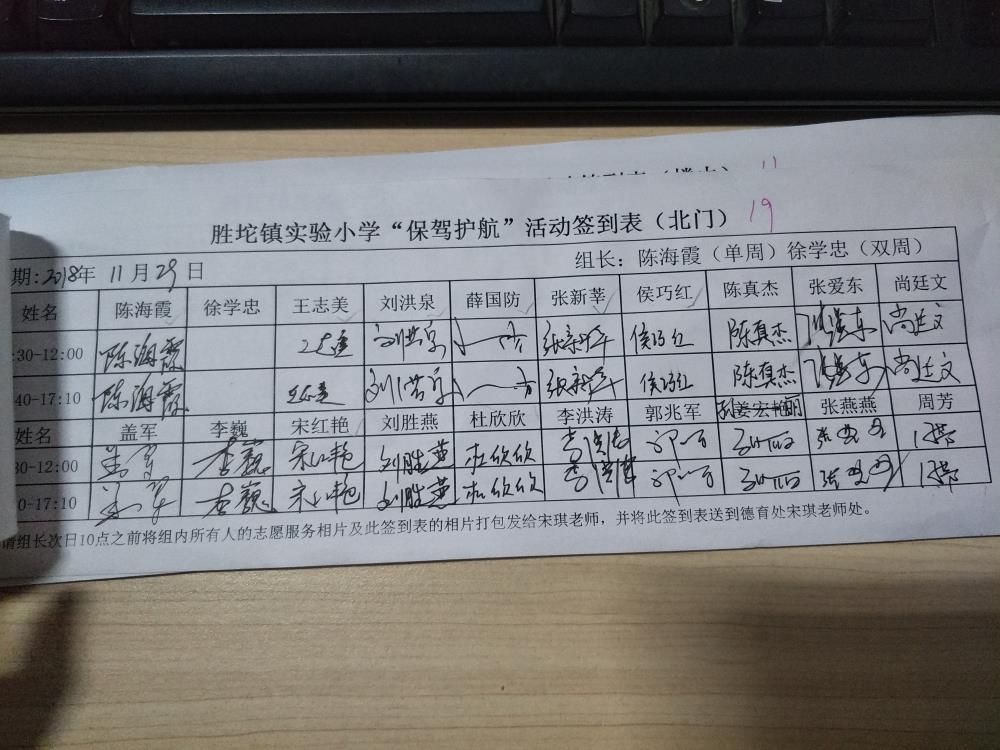 11
胜坨镇实验小学“保驾护航”活动签到表（北门） 19
期：2018年 11 月 29 日 组长：陈海霞（单周）徐学忠（双周）
姓名 陈海霞 徐学忠 王志美 刘洪泉 薛国防 张新莘 侯巧红 陈真杰 张爱东 尚廷文
:30-12:00 陈海霞 刘洪泉 张新莘 侯巧红 陈真杰 张爱东 尚廷文
40-17:10 陈海霞 刘洪泉 张新莘 侯巧红 陈真杰 张爱东 尚廷文
姓名 盖军 李巍 宋红艳 刘胜燕 杜欣欣 李洪涛 郭兆军 张燕燕 周芳
30-12:00 盖军 李巍 宋红艳 刘胜燕 杜欣欣 李洪涛
0-17:10 盖军 李巍 宋红艳 刘胜燕 杜欣欣 李洪涛
请组长次日10点之前将组内所有人的志愿服务相片及此签到表的相片打包发给宋琪老师，并将此签到表送到德育处宋琪老师处。